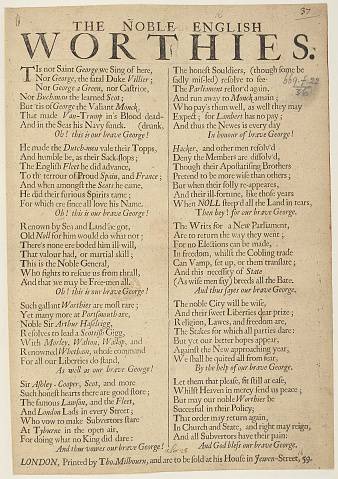 37
THE NOBLE ENGLISH
WORTHIES.
TIs not Saint George we Sing of here,
Nor George, the fatal Duke Villier;
Nor George a Green, nor Castriot,
Nor Buchanan the learned Scot;
But 'tis of George the Valiant Monck,
That made Van-Trump in's Blood dead-
And in the Seas his Navy sunck. (drunk,
Oh! this is our brave George!
He made the Dutch-men vale their Topps,
And humble be, as their Sack-slops;
The English Fleet he did advance,
To th' terrour of Proud Spain, and France;
And when amongst the Scots he came,
He did their furious Spirits tame;
For which ere since all love his Name.
Oh! this is our brave George!
Renown'd by Sea and Land he got,
Old Noll for him would do what not;
There's none ere boded him ill-will,
That valour had, or martial skill;
This is the Noble General,
Who fights to rescue us from thrall,
And that we may be Free-men all.
Oh! this is our brave George!
Such gallant Worthies are most rare;
Yet many more at Portsmouth are,
Noble Sir Arthur Haselrigg,
Resolves to lead a Scotish-Gigg,
With Morley, Walton, Wallop, and
Renowned Whetham, whose command
For all our Liberties do stand,
As well as our brave George!
Sir Ashley-Cooper, Scot, and more
Such honest hearts there are good store;
The famous Lawson, and the Fleet,
And London Lads in every Street;
Who vow to make Subvertors stare
At Tyburne in the open air,
For doing what no King did dare:
And thus vowes our brave George!
The honest Souldiers, (though some be
sadly mis-led) resolve to see
The Parliament restor'd again,
And run away to Monck amain;
Who pay's them well, as well they may
Expect; for Lambert has no pay;
And thus the Newes is every day
In honour of brave George!
Hacker, and other men resolv'd
Deny the Members are dissolv'd,
Though their Apostatising Brothers
Pretend to be more wise than others;
But when their folly re-appeares,
And their ill-fortune, like those years
When NOLL steep'd all the Land in tears,
Then hey! for our brave George.
The Writs for a New Parliament,
Are to return the way they went;
For no Elections can be made,
In freedom, whilst the Cobling trade
Can Vamp, set up, or them translate;
And this necessity of State
(As wise men say) breeds all the Bate.
And thus sayes our brave George.
The noble City will be wise,
And their sweet Liberties dear prize;
Religion, Lawes, and freedom are,
The Stakes for which all parties dare:
But yet our better hopes appear,
Against the New approaching year,
We shall be quitted all from fear,
By the help of our brave George.
Let them that please, sit still at ease,
Whilst Heaven in mercy send us peace;
But may our noble Worthies be
Successful in their Policy;
That order may return again,
In Church and State, and right may reign,
And all Subvertors have their pain:
And God bless our brave George.
LONDON, Printed by Tho. Milbourn, and are to be sold at his House in Jewen-Street, 59.